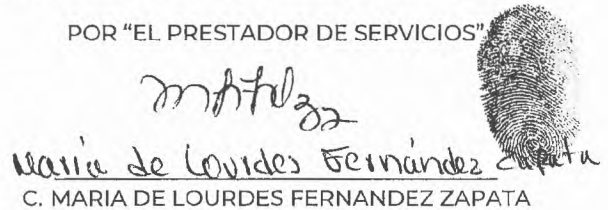 POR "EL PRESTADOR DE SERVICIOS"
María de Lourdes Fernández Zapata
C. MARIA DE LOURDES FERNANDEZ ZAPATA